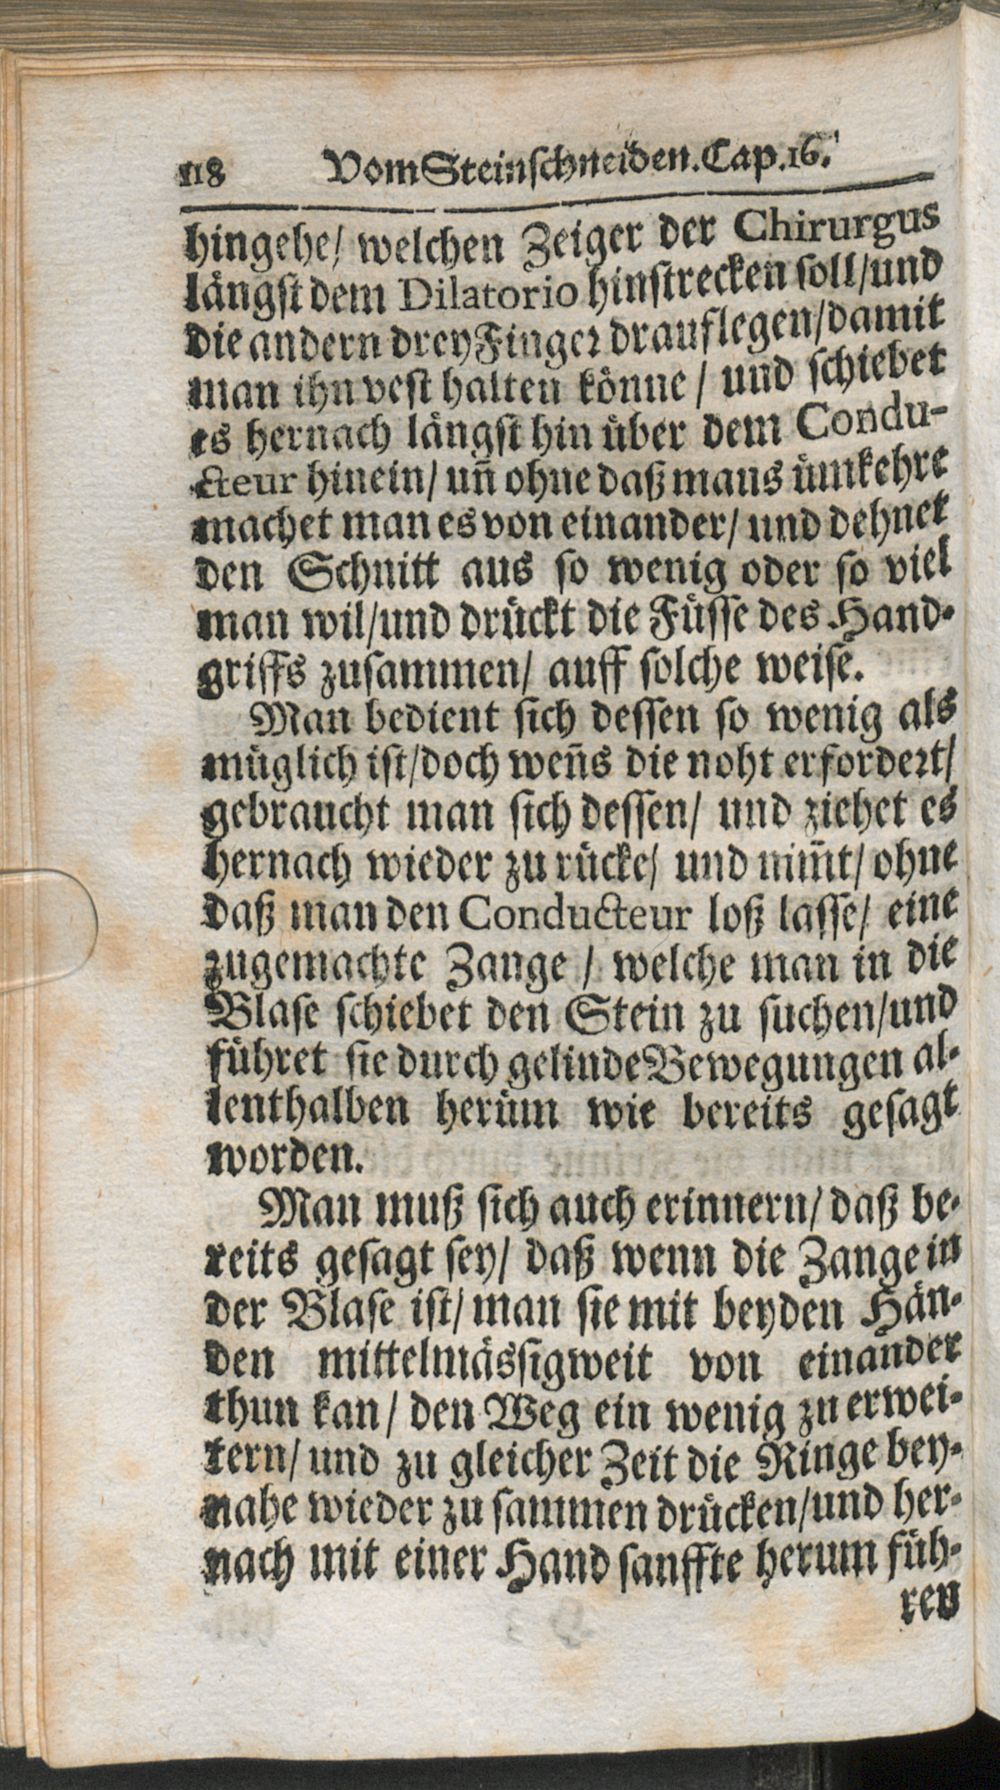 118 Vom Steinschneiden. Cap. 16.
hingehe/ welchen Zeiger der Chirurgus
längst dem Dilatorio hinstrecken soll/und
die andern drey Finger drauflegen/damit
man ihn vest halten könne / und schiebet
es hernach längst hin über dem Condu-
cteur hinein/ uñ ohne daß mans ümkehre
machet man es von einander/ und dehnet
den Schnitt aus so wenig oder so viel
man wil/und drückt die Füsse des Hand-
griffs zusammen/ auff solche weise.
Man bedient sich dessen so wenig als
müglich ist/doch weñs die noht erfordert/
gebraucht man sich dessen/ und ziehet es
hernach wieder zu rücke/ und nim̃t/ ohne
daß man den Conducteur loß lasse/ eine
zugemachte Zange / welche man in die
Blase schiebet den Stein zu suchen/und
führet sie durch gelinde Bewegungen al-
lenthalben herüm wie bereits gesagt
worden.
Man muß sich auch erinnern/ daß be-
reits gesagt sey/ daß wenn die Zange in
der Blase ist/ man sie mit beyden Hän-
den mittelmässig weit von einander
thun kan/ den Weg ein wenig zu erwei-
tern/ und zu gleicher Zeit die Ringe bey-
nahe wieder zu sammen drücken/und her-
nach mit einer Hand sanffte herum füh-
ren